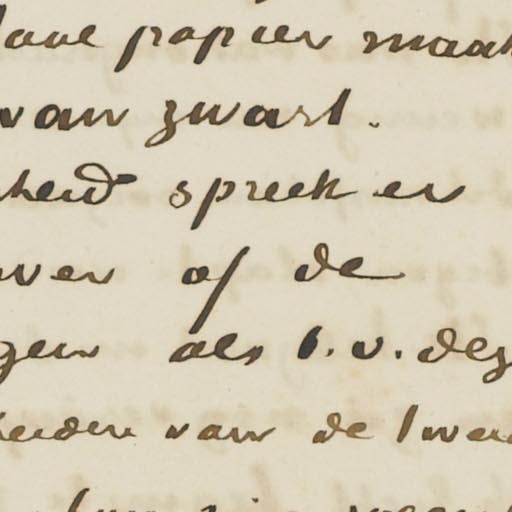 papier maak
van zwart.
heid spreek er
ver of de
gen als b.v. dez
heiden van de twee